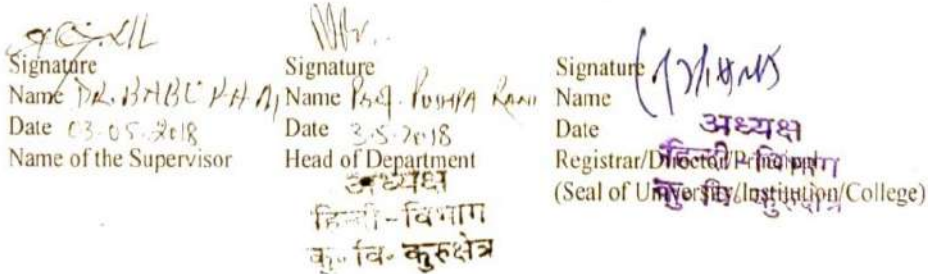 Signature
Name DR. BABU RAM
Date 03.05.2018
Name of the Supervisor
Signature
Name Prof. PUSHPA RANI
Date 3.5.2018
Head of Department
अध्यक्ष
हिन्दी-विभाग
कु. वि. कुरुक्षेत्र
Signature
Name
Date
अध्यक्ष
Registrar/Director/Principal
हिन्दी-विभाग
(Seal of University/Institution/College)
कु. वि. कुरुक्षेत्र